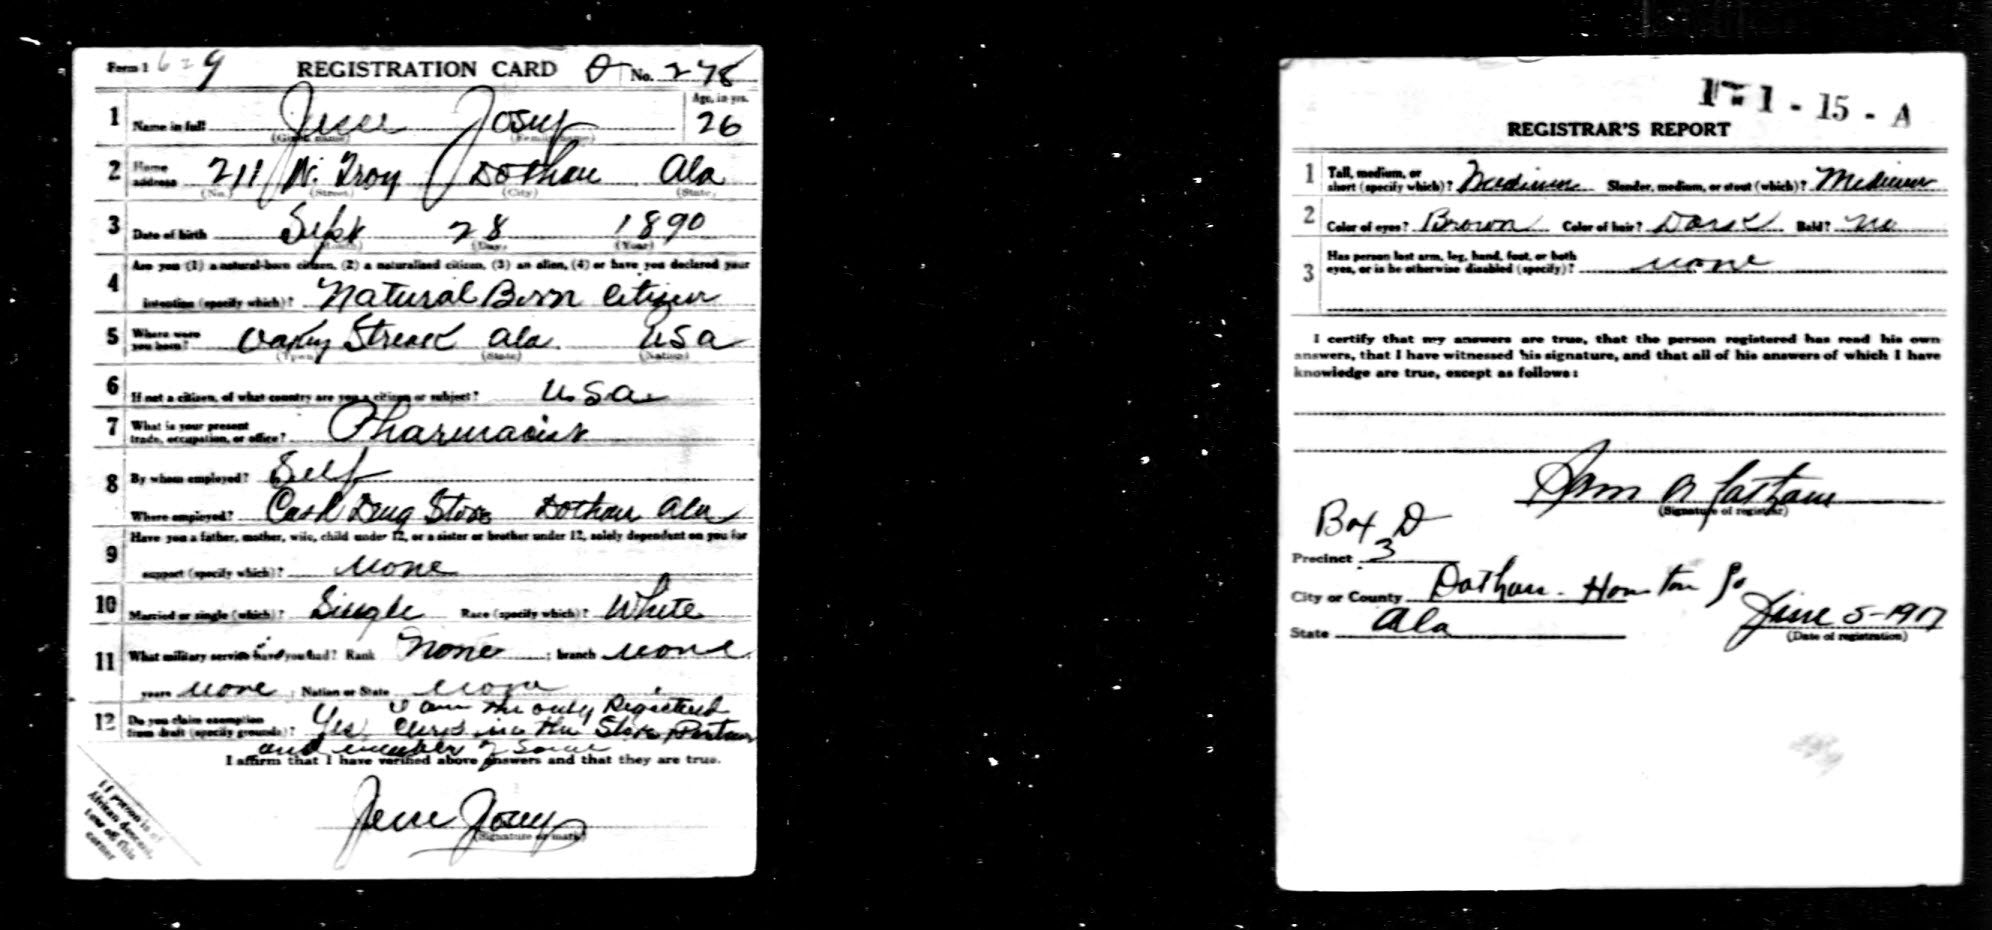 Form 1 629 REGISTRATION CARD No. 278
1 Name in full Jesse Josey Age, in yrs. 26
(Given name) (Family name)
2 Home address 211 N. Troy Dothan Ala
(No.) (Street) (City) (State)
3 Date of birth Sept 28 1890
(Month) (Day) (Year)
4 Are you (1) a natural-born citizen, (2) a naturalized citizen, (3) an alien, (4) or have you declared your
intention (specify which)? Natural Born Citizen
5 Where were you born? Streak Ala. USA
(Town) (State) (Nation)
6 If not a citizen, of what country are you a citizen or subject? USA
7 What is your present trade, occupation, or office? Pharmacist
8 By whom employed? Self
Where employed? Cash Drug Store Dothan Ala
9 Have you a father, mother, wife, child under 12, or a sister or brother under 12, solely dependent on you for
support (specify which)? None
10 Married or single (which)? Single Race (specify which)? White
11 What military service have you had? Rank None ; branch None
years None ; Nation or State None
I am the only Registered
12 Do you claim exemption from draft (specify grounds)? Yes, Clerk in the Store Partner
and member of same
I affirm that I have verified above answers and that they are true.
Jesse Josey
(Signature or mark)
If person is of
African descent,
tear off this
corner
1-15-A
REGISTRAR'S REPORT
1 Tall, medium, or short (specify which)? Medium Slender, medium, or stout (which)? Medium
2 Color of eyes? Brown Color of hair? Dark Bald? No
3 Has person lost arm, leg, hand, foot, or both
eyes, or is he otherwise disabled (specify)? None
I certify that my answers are true, that the person registered has read his own
answers, that I have witnessed his signature, and that all of his answers of which I have
knowledge are true, except as follows:
Sam Latham
(Signature of registrar)
Box D
Precinct 3
City or County Dothan - Houston Co
State Ala June 5-1917
(Date of registration)